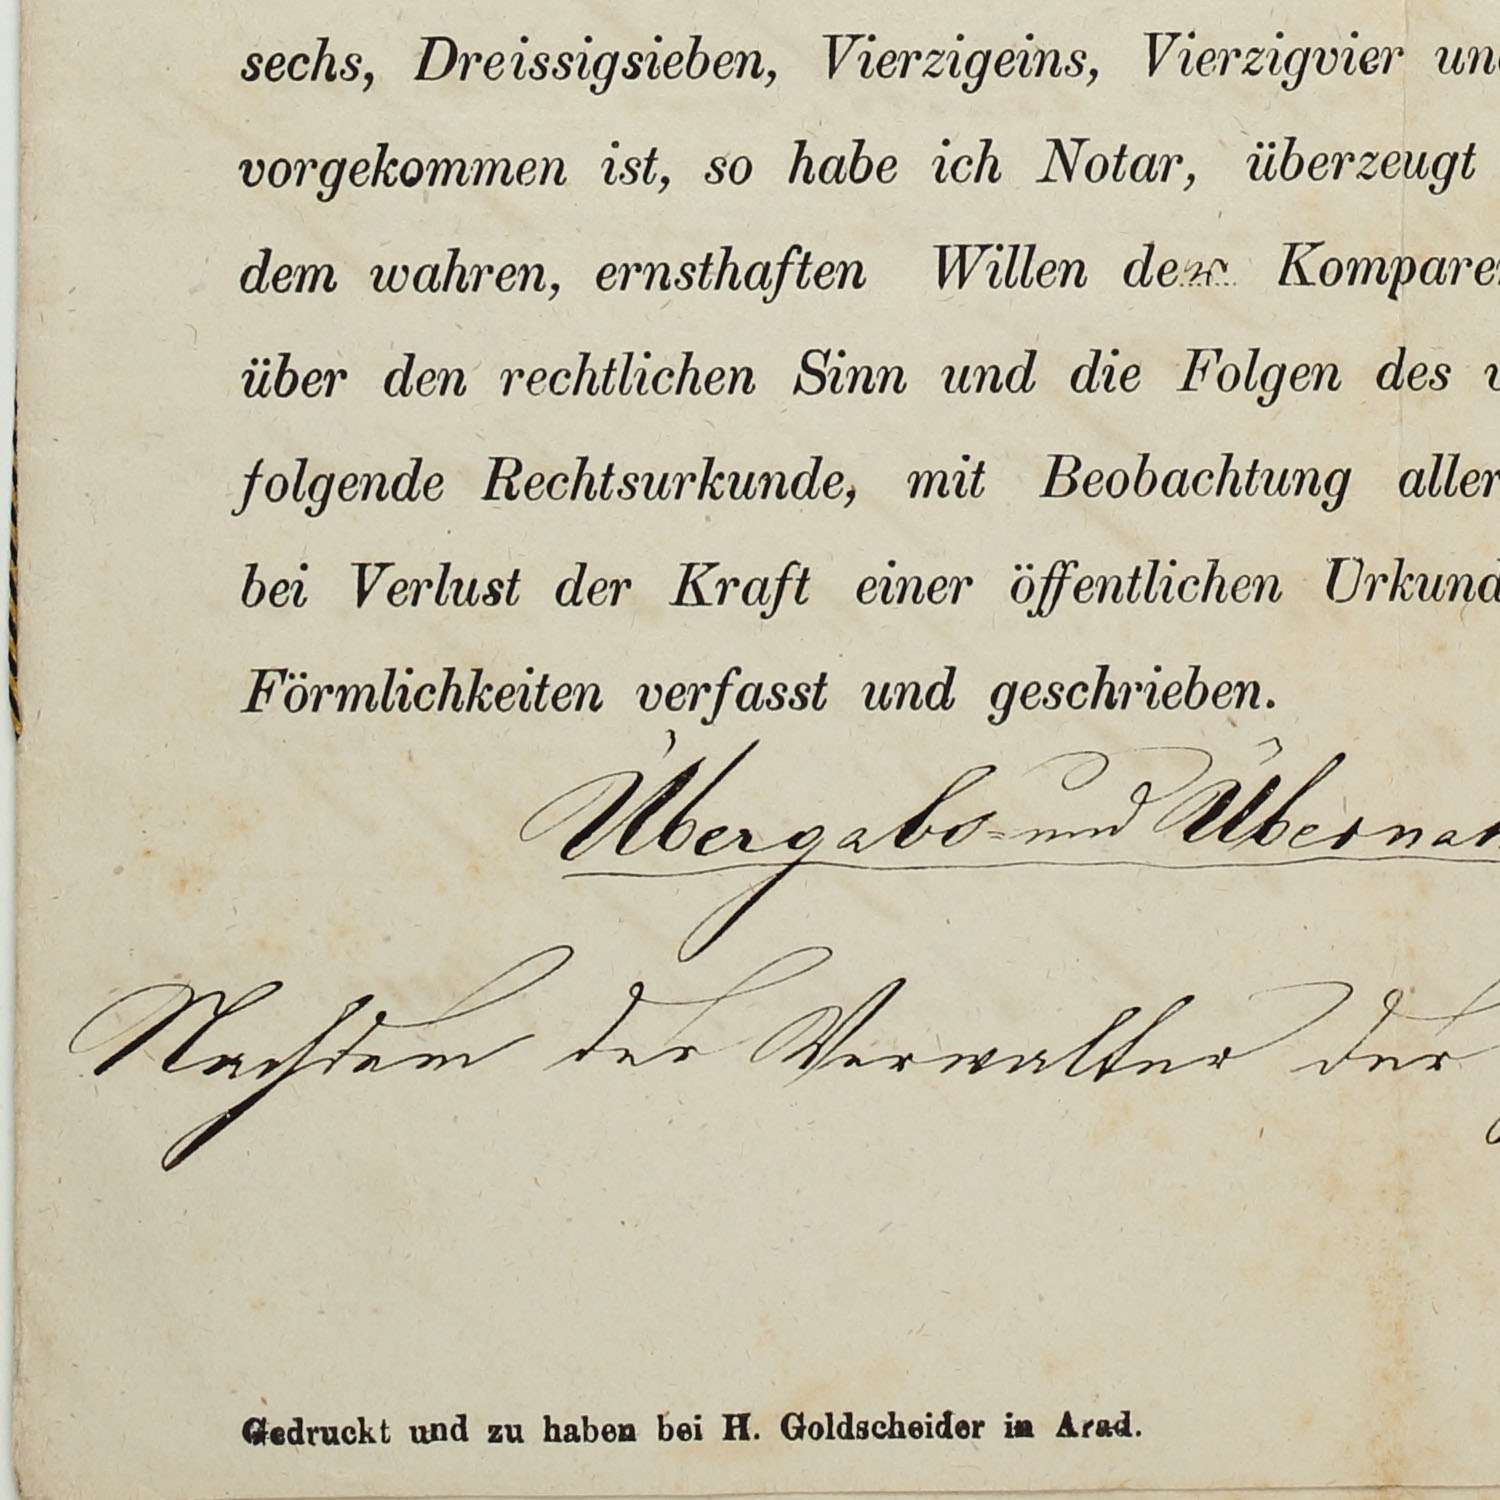 sechs, Dreissigsieben, Vierzigeins, Vierzigvier und
vorgekommen ist, so habe ich Notar, überzeugt
dem wahren, ernsthaften Willen der Komparen
über den rechtlichen Sinn und die Folgen des v
folgende Rechtsurkunde, mit Beobachtung aller
bei Verlust der Kraft einer öffentlichen Urkund
Förmlichkeiten verfasst und geschrieben.
Übergabs- und Übernah
Nachdem der Verwalter der
Gedruckt und zu haben bei H. Goldscheider in Arad.